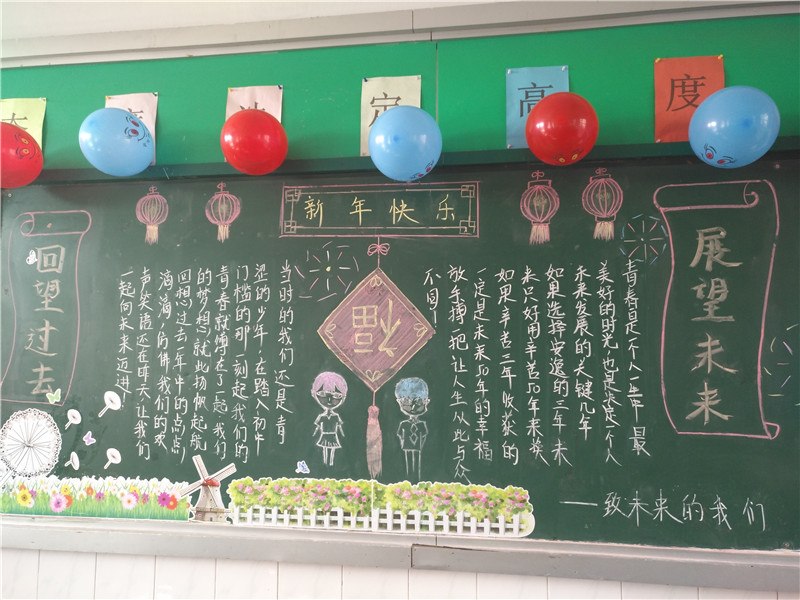 定 高 度
新年快乐
展望未来
青春是一个人一生中最
美好的时光,也是决定一个人
未来发展的关键几年
如果选择安逸的三年未
来只好用辛苦50年来换
如果辛苦三年收获的
一定是未来50年的幸福
放手搏一把让人生从此与众
不同!
福
当时的我们还是青
涩的少年,在踏入初中
门槛的那一刻起我们的
青春就缚在了一起我们
的梦想就此扬帆起航
回想过去年中的点点
滴滴,仿佛我们的欢
声笑语还在昨天让我们
一起向未来迈进!
回望过去
——致未来的我们